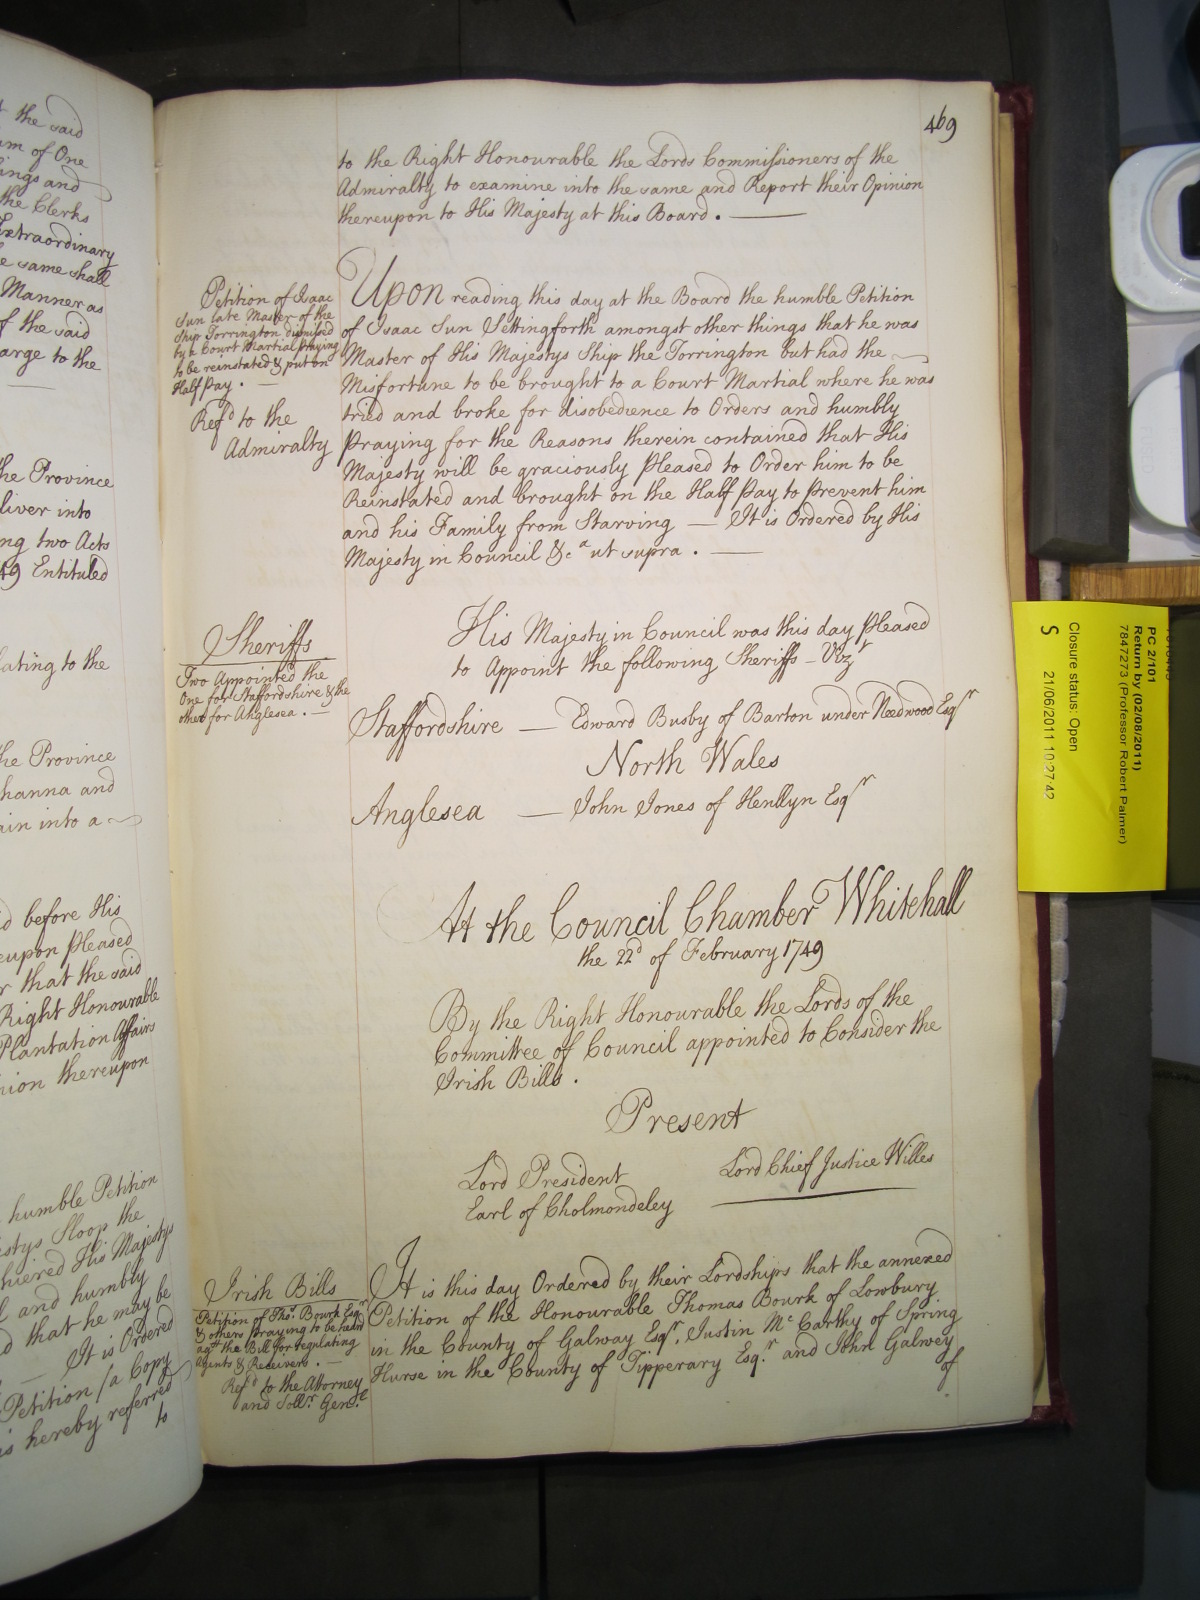 t the said
um of One
ings and
the Clerks
Extraordinary
e same shall
Manner as
f the said
arge to the
the Province
liver into
ng two Acts
49 Entituled
lating to the
he Province
hanna and
ain into a
d before His
eupon pleased
r that the said
Right Honourable
Plantation Affairs
nion thereupon
humble Petition
stys Sloop the
hiered His Majestys
l and humbly
d that he may be
It is Ordered
Petition /a Copy
is hereby referred
to
469
to the Right Honourable the Lords Commissioners of the
Admiralty to examine into the same and Report their Opinion
thereupon to His Majesty at this Board. —
Petition of Isaac
Sun late Master of the
Ship Torrington dismissed
by a Court Martial praying
to be reinstated & put on
Half pay. —
Refd to the
Admiralty
Upon reading this day at the Board the humble Petition
of Isaac Sun Settingforth amongst other things that he was
Master of His Majestys Ship the Torrington but had the
Misfortune to be brought to a Court Martial where he was
tried and broke for disobedience to Orders and humbly
praying for the Reasons therein contained that His
Majesty will be graciously pleased to Order him to be
Reinstated and brought on the Half Pay to prevent him
and his Family from Starving — It is Ordered by His
Majesty in Council &ca ut supra. —
Sheriffs
Two Appointed the
One for Staffordshire & the
other for Anglesea. —
His Majesty in Council was this day pleased
to Appoint the following Sheriffs – Vizt
Staffordshire — Edward Busby of Barton under Needwood Esqr
North Wales
Anglesea — John Jones of Henllyn Esqr
At the Council Chamber Whitehall
the 22d of February 1749
By the Right Honourable the Lords of the
Committee of Council appointed to Consider the
Irish Bills.
Present
Lord President
Earl of Cholmondeley
Lord Chief Justice Willes
Irish Bills
Petition of Thos. Bourk Esqr
& others praying to be heard
agt the Bill for regulating
Agents & Receivers. —
Refd to the Attorney
and Sollr. Genl.
It is this day Ordered by their Lordships that the annexed
Petition of the Honourable Thomas Bourk of Lowbury
in the County of Galway Esqr. Justin Mc Carthy of Spring
Hurse in the County of Tipperary Esq.r and John Galwey
of
PC 2/101
Return by (02/08/2011)
7847273 (Professor Robert Palmer)
Closure status: Open
S 21/06/2011 10:27:42